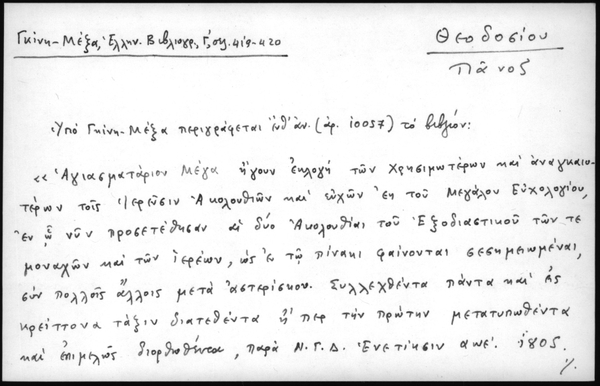 Γκίνη-Μέξα, Ἑλλην. Βιβλιογρ. Γ', σελ. 419-420
Θεοδοσίου
Πᾶνος
Ὑπὸ Γκίνη-Μέξα περιγράφεται ἐνθ' ἀν. (ἀρ. 10057) τὸ βιβλίον:
«Ἁγιασματάριον Μέγα ἤγουν ἐκλογὴ τῶν χρησιμωτέρων καὶ ἀναγκαιο-
τέρων τοῖς Ἱερεῦσιν Ἀκολουθιῶν καὶ εὐχῶν ἐκ τοῦ Μεγάλου Εὐχολογίου,
ἐν ᾧ νῦν προσετέθησαν αἱ δύο Ἀκολουθίαι τοῦ Ἐξοδιαστικοῦ τῶν τε
μοναχῶν καὶ τῶν ἱερέων, ὡς ἐν τῷ πίνακι φαίνονται σεσημειωμέναι,
σὺν πολλοῖς ἄλλοις μετὰ ἀστερίσκου. Συλλεχθέντα πάντα καὶ εἰς
κρείττονα τάξιν διατεθέντα ἤ περ τὴν πρώτην μετατυπωθέντα
καὶ ἐπιμελῶς διορθωθέντα, παρὰ Ν. Γ. Δ. Ἐνετίησιν αωε'. 1805.
./.